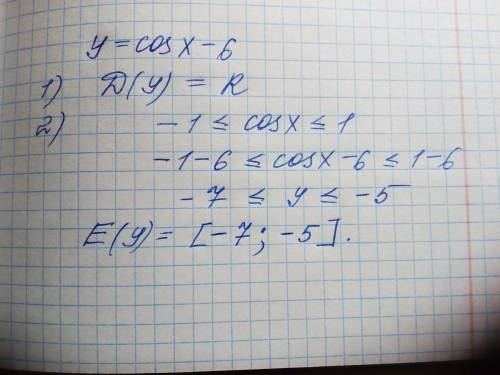 y = cos x - 6
1) D(y) = R
2) -1 ≤ cos x ≤ 1
-1-6 ≤ cos x - 6 ≤ 1-6
-7 ≤ y ≤ -5
E(y) = [-7; -5].